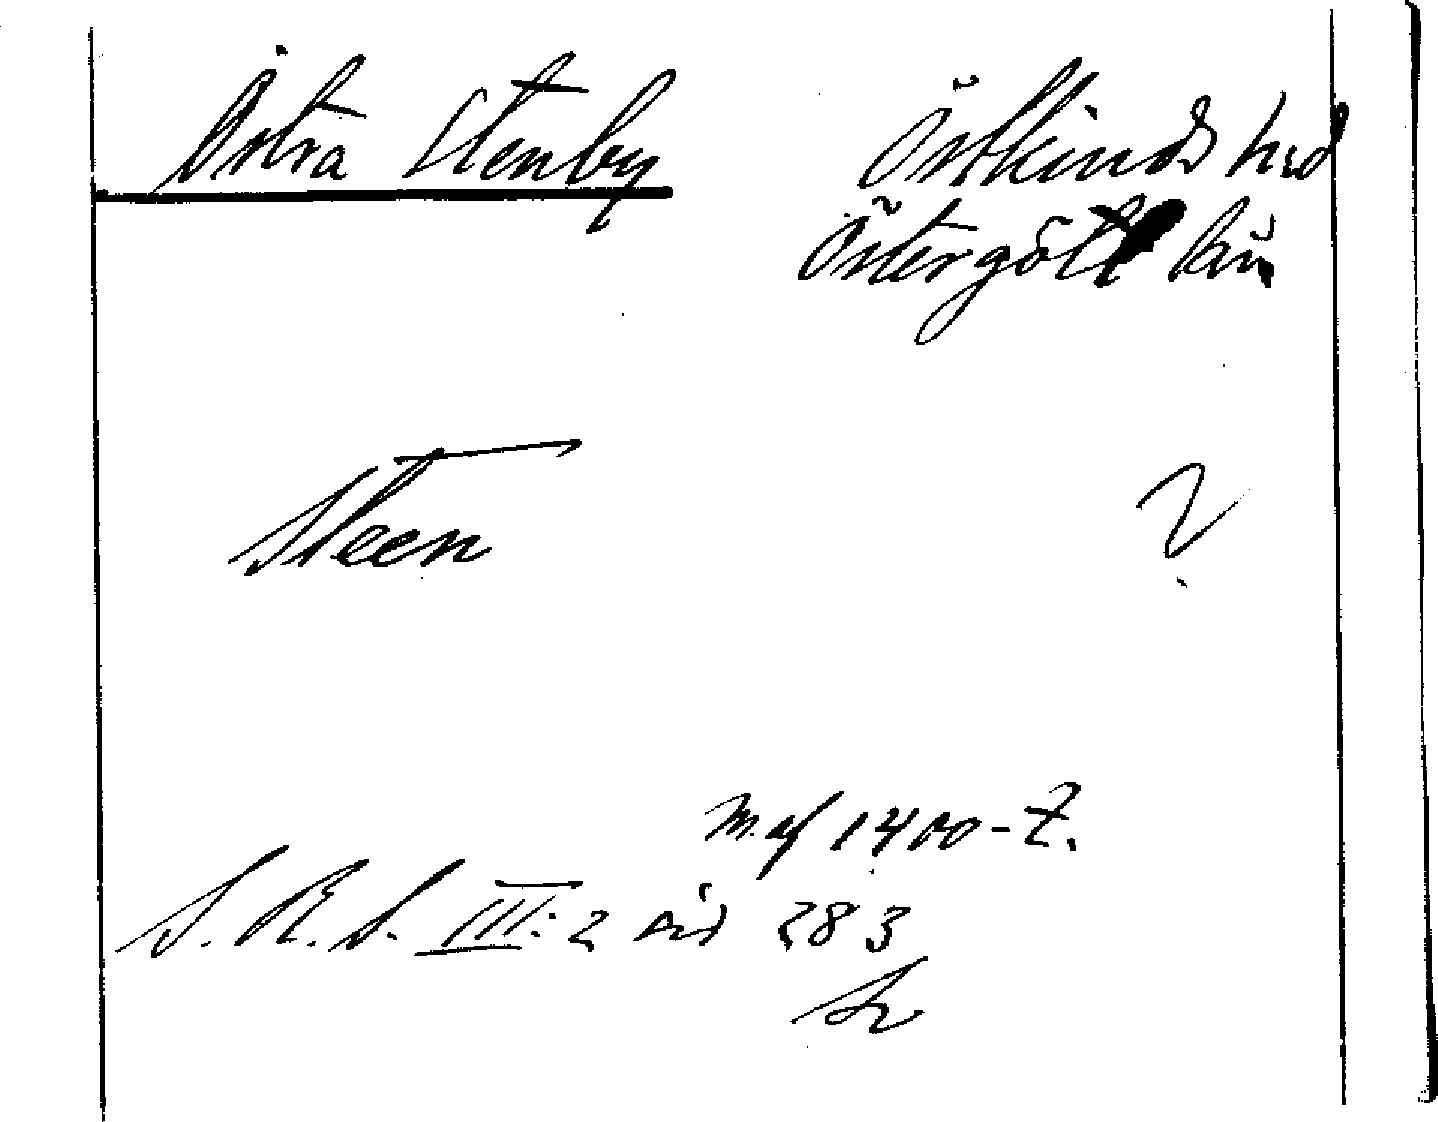 Östra Stenby Östkinds hrd
Östergötl län
Steen ?
m. af 1400-t.
S. R. S. III: 2 sid 283